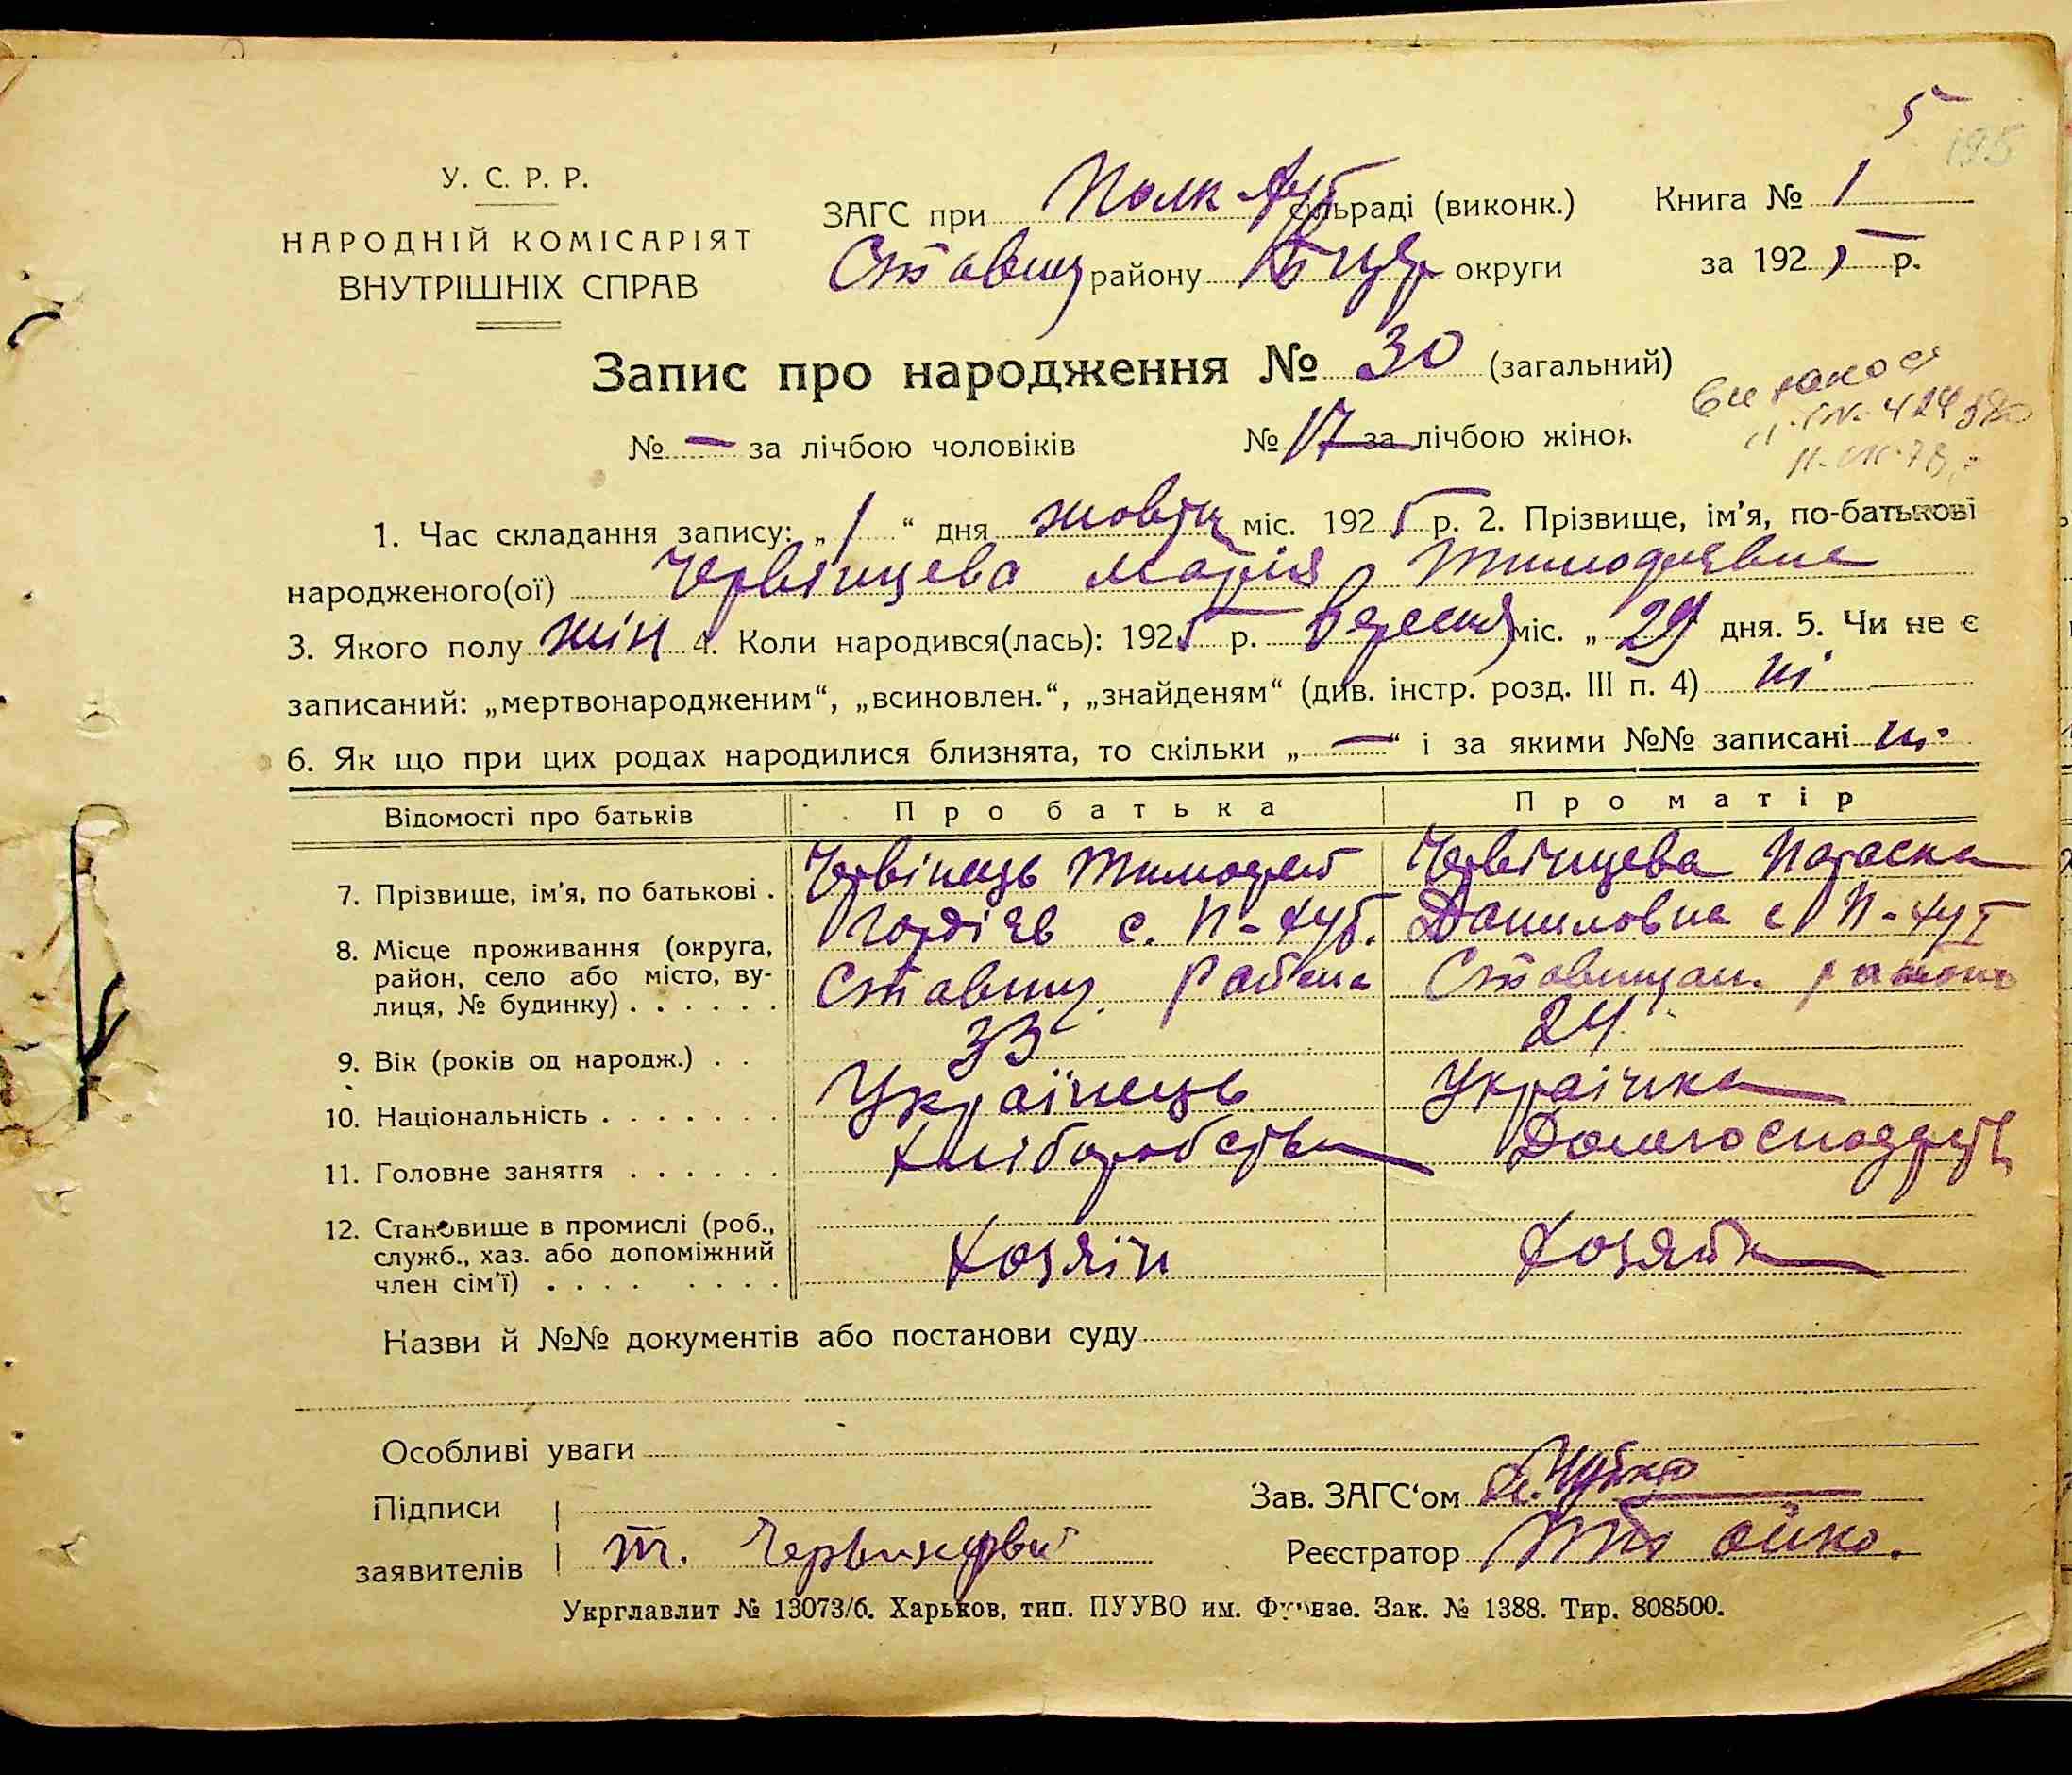 5
195
У. С. Р. Р.
НАРОДНІЙ КОМІСАРІЯТ
ВНУТРІШНІХ СПРАВ
ЗАГС при Полк-Хут сільраді (виконк.)
Ставищ району Б Церк округи
Книга № 1
за 1925 р.
Запис про народження № 30 (загальний)
№ — за лічбою чоловіків № 17 за лічбою жінок
1. Час складання запису: „1“ дня жовтн міс. 1925 р. 2. Прізвище, ім'я, по-батькові
народженого(ої) Червінцева Марія Тимофієвна
3. Якого полу жін 4. Коли народився(лась): 1925 р. вересня міс. „29 дня. 5. Чи не є
записаний: „мертвонародженим“, „всиновлен.“, „знайденям“ (див. інстр. розд. III п. 4) ні
6. Як що при цих родах народилися близнята, то скільки „—“ і за якими №№ записані
Відомості про батьків Про батька Про матір
7. Прізвище, ім'я, по батькові . Червінець Тимофей Червінцева Параска
8. Місце проживання (округа, Гордіев с. П-Хут. Даниловна с П-Хут
район, село або місто, ву-
лиця, № будинку) . . . . . . Ставищ. района Ставищан. района
9. Вік (років од народж.) . . 33 24
10. Національність . . . . . . . Українець Українка
11. Головне заняття . . . . . . Хліборобство Домогосподрст
12. Становище в промислі (роб.,
служб., хаз. або допоміжний Хозяін Хозяйка
член сім'ї) . . . . . . . .
Назви й №№ документів або постанови суду
Особливі уваги
Підписи
заявителів Т.
Зав. ЗАГС'ом
Реєстратор
Укрглавлит № 13073/б. Харьков, тип. ПУУВО им. Фрунзе. Зак. № 1388. Тир. 808500.